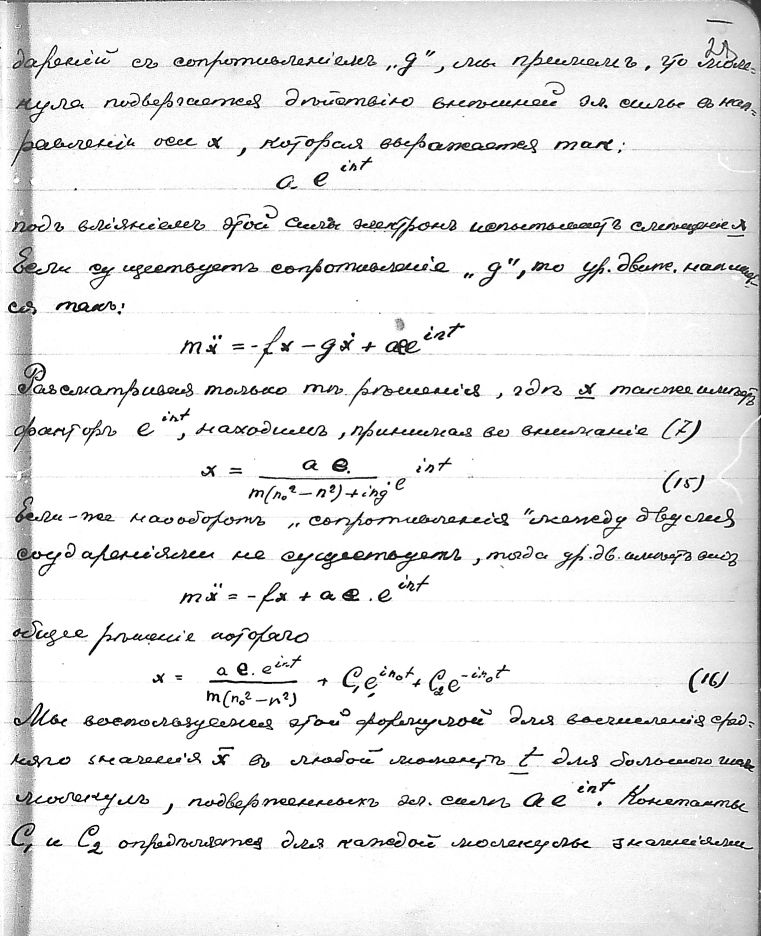 28
дареній съ сопротивленіемъ „g", мы примемъ, что моле=
кула подвергается дѣйствію внѣшней эл. силы въ нап=
равленіи оси x, которая выражается такъ:
a e^{int}
подъ вліяніемъ этой силы электронъ испытываетъ смѣщеніе x
Если существуетъ сопротивленіе „g", то ур. движ. напишет=
ся такъ:
mẍ = -fx - gẋ + aee^{int}
Разсматривая только тѣ рѣшенія, гдѣ x также имѣетъ
факторъ e^{int}, находимъ, принимая во вниманіе (7)
x = \frac{a e.}{m(n_0^2 - n^2) + ing} e^{int} (15)
Если-же наоборотъ „сопротивленія" между двумя
соудареніями не существуетъ, тогда ур. дв. имѣетъ видъ
mẍ = -fx + ae . e^{int}
общее рѣшеніе котораго
x = \frac{a e. e^{int}}{m(n_0^2 - n^2)} + C_1 e^{in_0t} + C_2 e^{-in_0t} (16)
Мы воспользуемся этой формулой для вычисленія сред=
няго значенія x̄ въ любой моментъ t для большого числа
молекулъ, подверженныхъ эл. силѣ ae^{int}. Константы
C_1 и C_2 опредѣляются для каждой молекулы значеніями